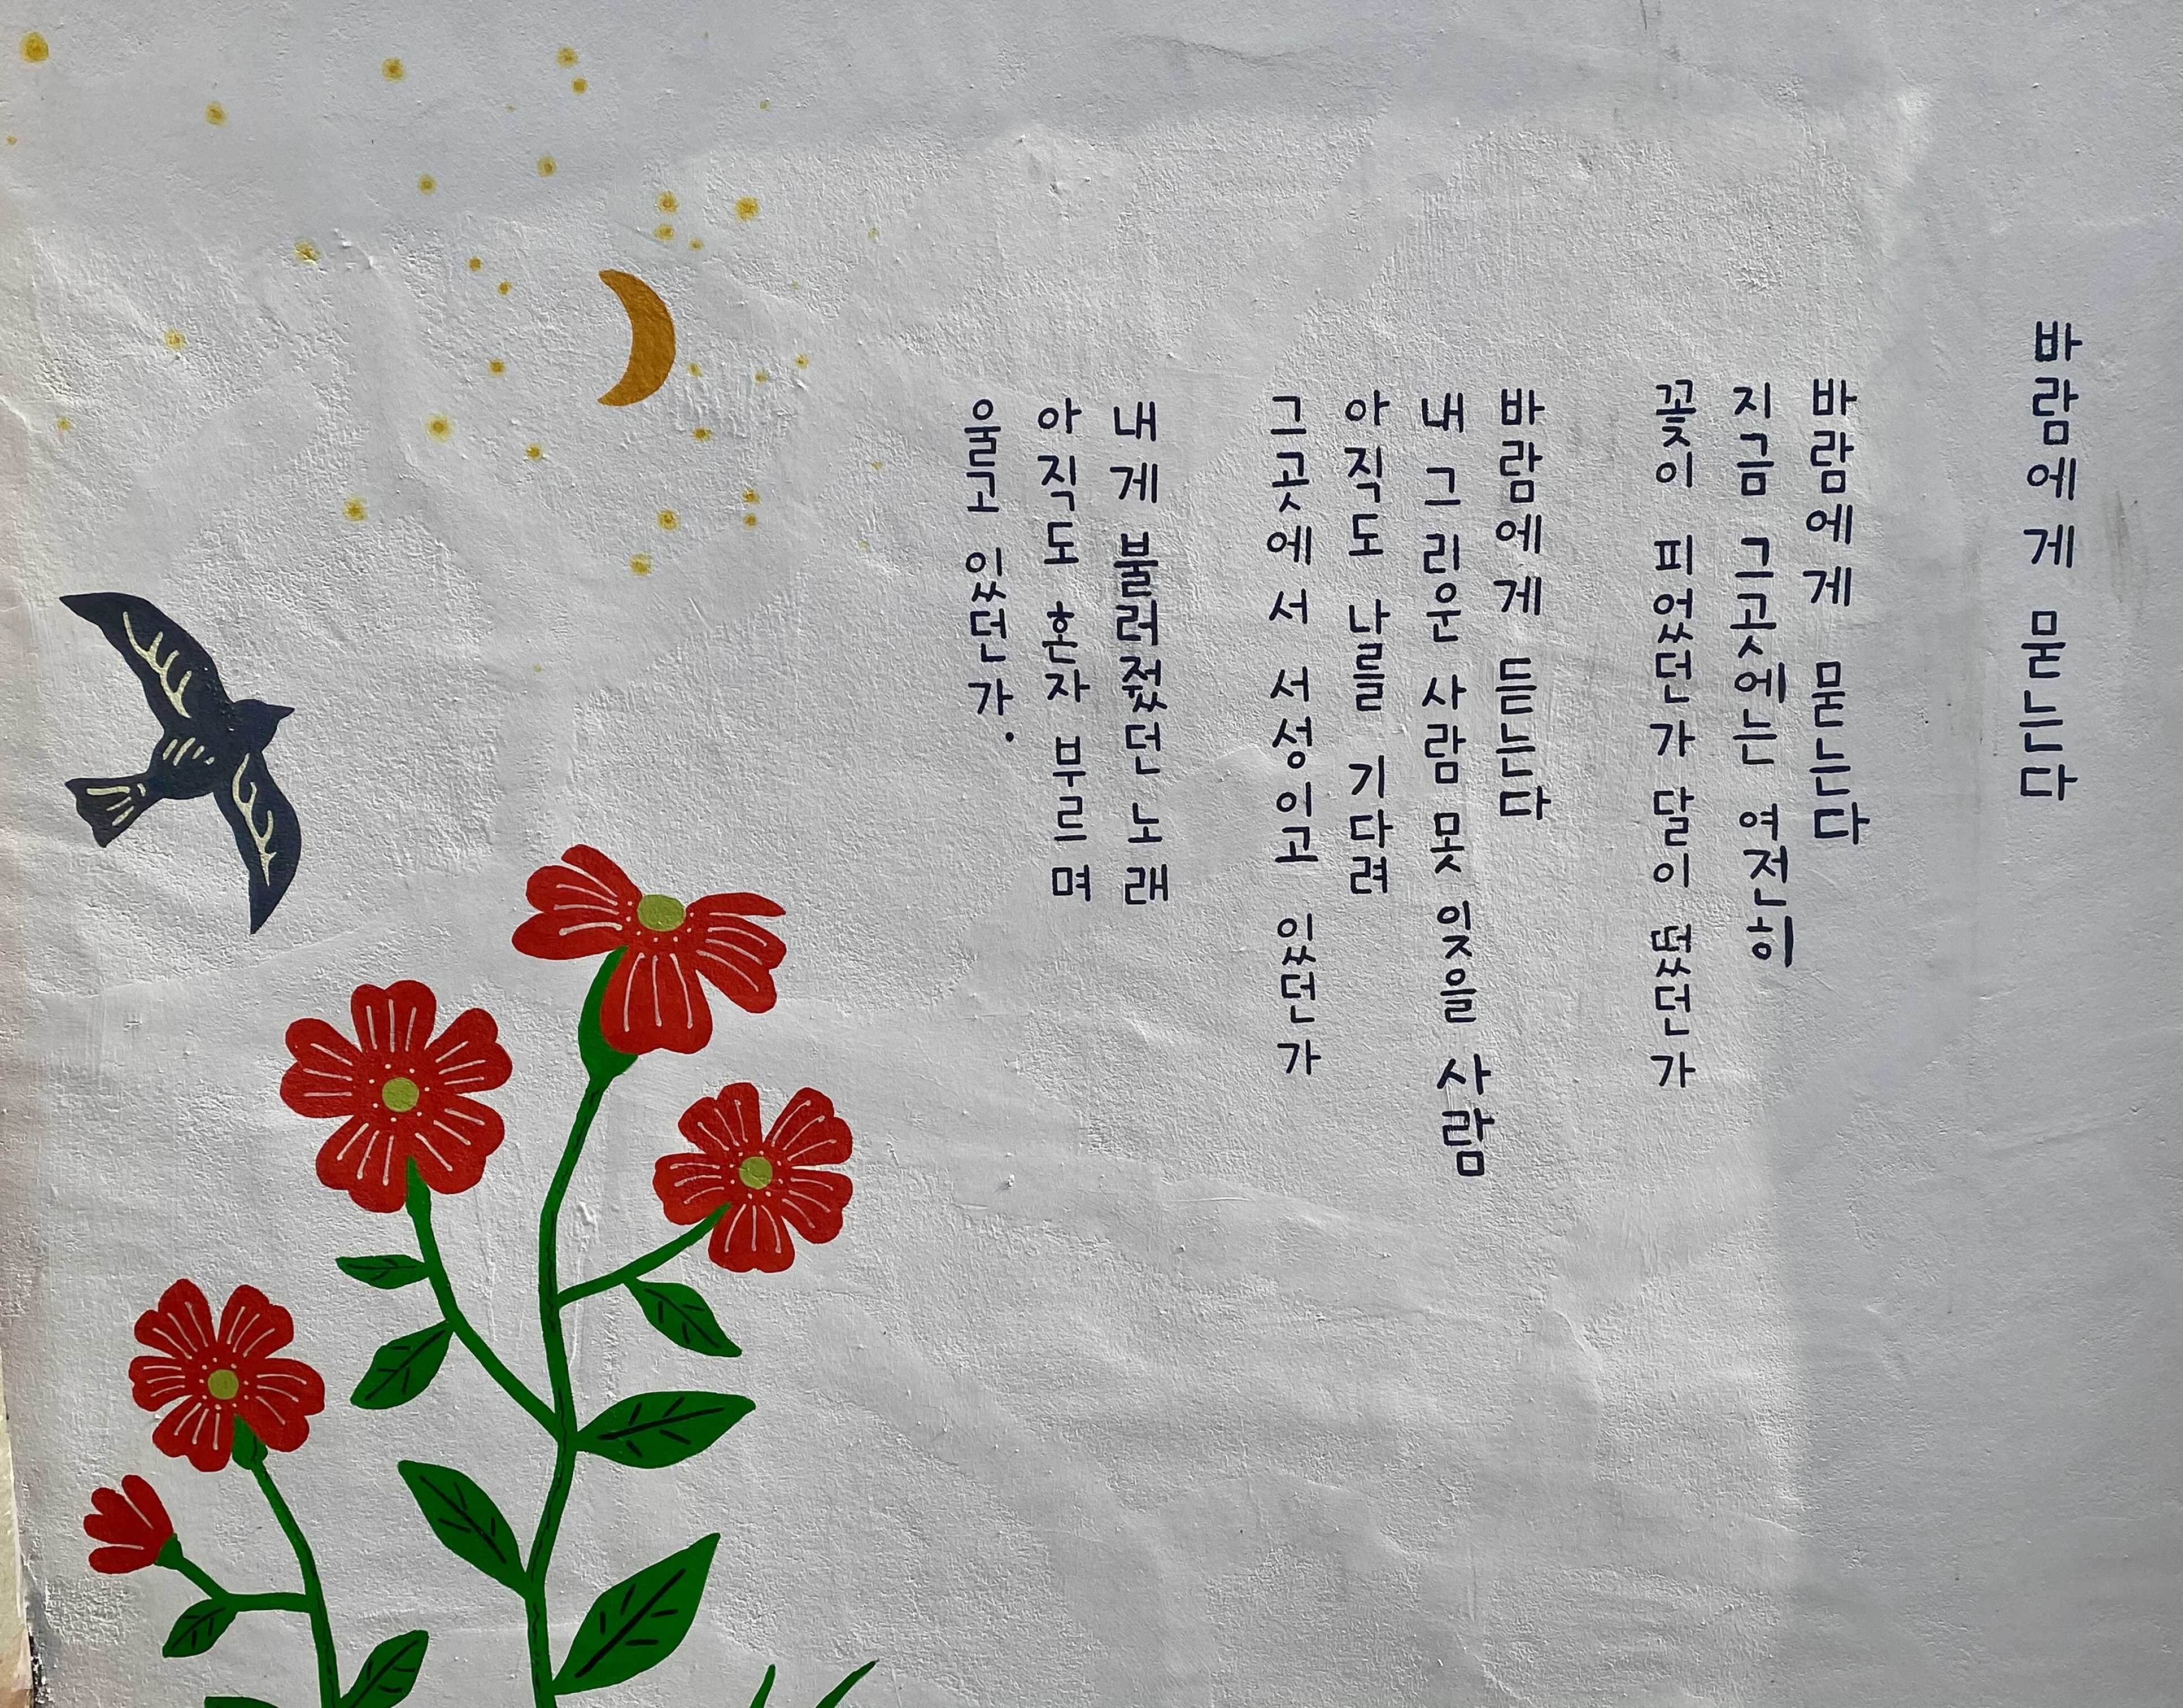 바람에게 묻는다
바람에게 묻는다
지금 그곳에는 여전히
꽃이 피었던가 달이 떴던가
바람에게 듣는다
내 그리운 사람 못 잊을 사람
아직도 나를 기다려
그곳에서 서성이고 있던가
내게 불러줬던 노래
아직도 혼자 부르며
울고 있던가.